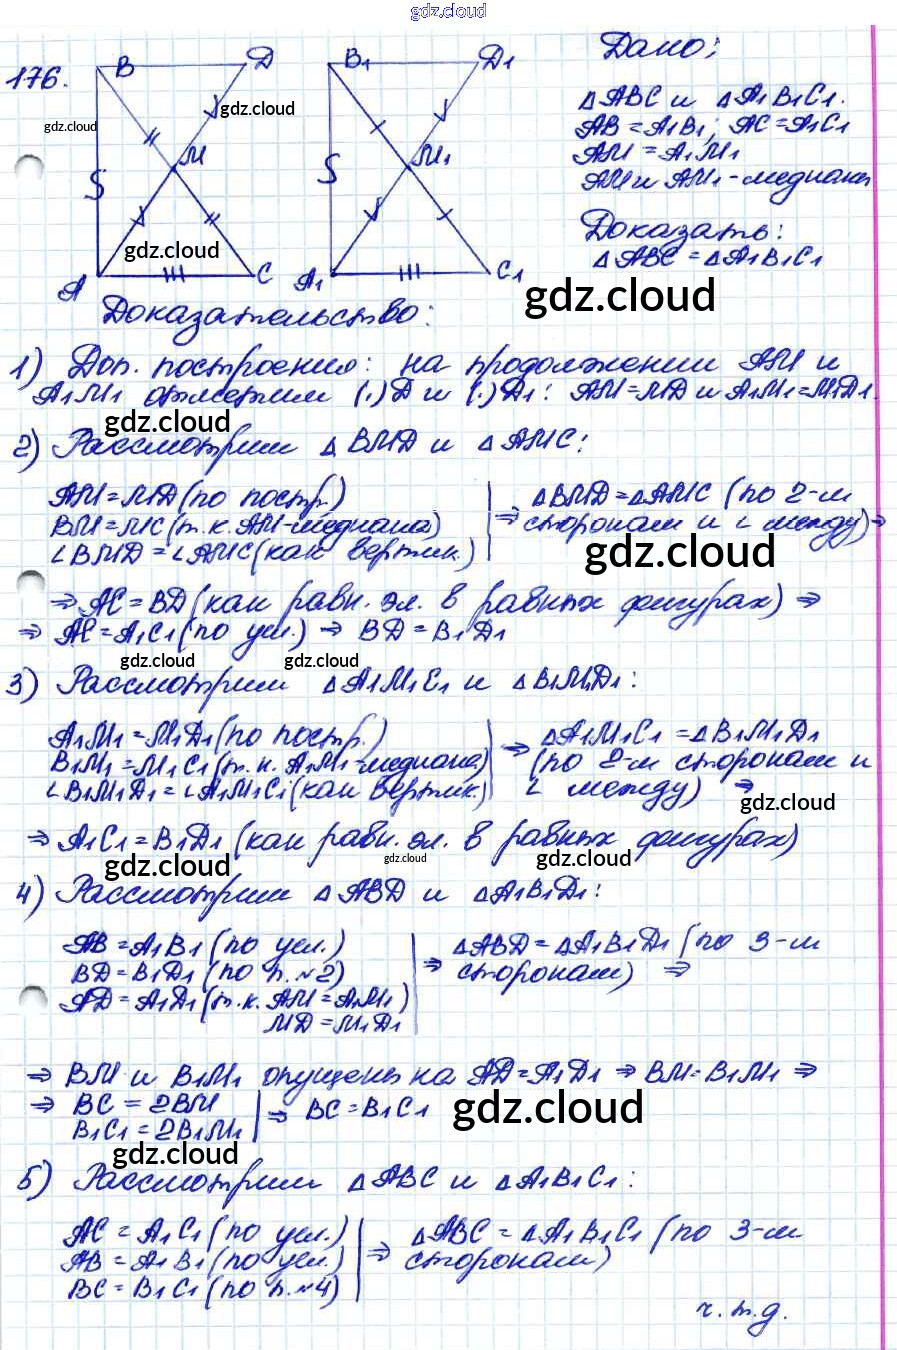 gdz.cloud
176.
B D B₁ D₁
M M₁
S S
A C A₁ C₁
gdz.cloud
gdz.cloud
gdz.cloud
Дано:
△ABC и △A₁B₁C₁.
AB = A₁B₁; AC = A₁C₁
AM = A₁M₁
AM и AM₁ - медианы
Доказать:
△ABC = △A₁B₁C₁
gdz.cloud
Доказательство:
1) Доп. построения: на продолжении AM и
A₁M₁ отметим (·) D и (·) D₁: AM = MD и A₁M₁ = M₁D₁.
gdz.cloud
2) Рассмотрим △BMD и △AMC:
AM = MD (по постр.)
BM = MC (т.к. AM - медиана)
∠BMD = ∠AMC (как вертик.)
⇒ △BMD = △AMC (по 2-м
сторонам и ∠ между) ⇒
gdz.cloud
⇒ AC = BD (как равн. эл. в равных фигурах) ⇒
⇒ AC = A₁C₁ (по усл.) ⇒ BD = B₁D₁
gdz.cloud gdz.cloud
3) Рассмотрим △A₁M₁C₁ и △B₁M₁D₁:
A₁M₁ = M₁D₁ (по постр.)
B₁M₁ = M₁C₁ (т.к. A₁M₁ - медиана)
∠B₁M₁D₁ = ∠A₁M₁C₁ (как вертик.)
⇒ △A₁M₁C₁ = △B₁M₁D₁
(по 2-м сторонам и
∠ между) ⇒
gdz.cloud
⇒ A₁C₁ = B₁D₁ (как равн. эл. в равных фигурах)
gdz.cloud gdz.cloud gdz.cloud
4) Рассмотрим △ABD и △A₁B₁D₁:
AB = A₁B₁ (по усл.)
BD = B₁D₁ (по п. №2)
AD = A₁D₁ (т.к. AM = A₁M₁)
MD = M₁D₁
⇒ △ABD = △A₁B₁D₁ (по 3-м
сторонам) ⇒
⇒ BM и B₁M₁ опущены на AD = A₁D₁ ⇒ BM = B₁M₁ ⇒
⇒ BC = 2BM
B₁C₁ = 2B₁M₁
⇒ BC = B₁C₁
gdz.cloud
gdz.cloud
5) Рассмотрим △ABC и △A₁B₁C₁:
AC = A₁C₁ (по усл.)
AB = A₁B₁ (по усл.)
BC = B₁C₁ (по п. №4)
⇒ △ABC = △A₁B₁C₁ (по 3-м
сторонам)
ч.т.д.